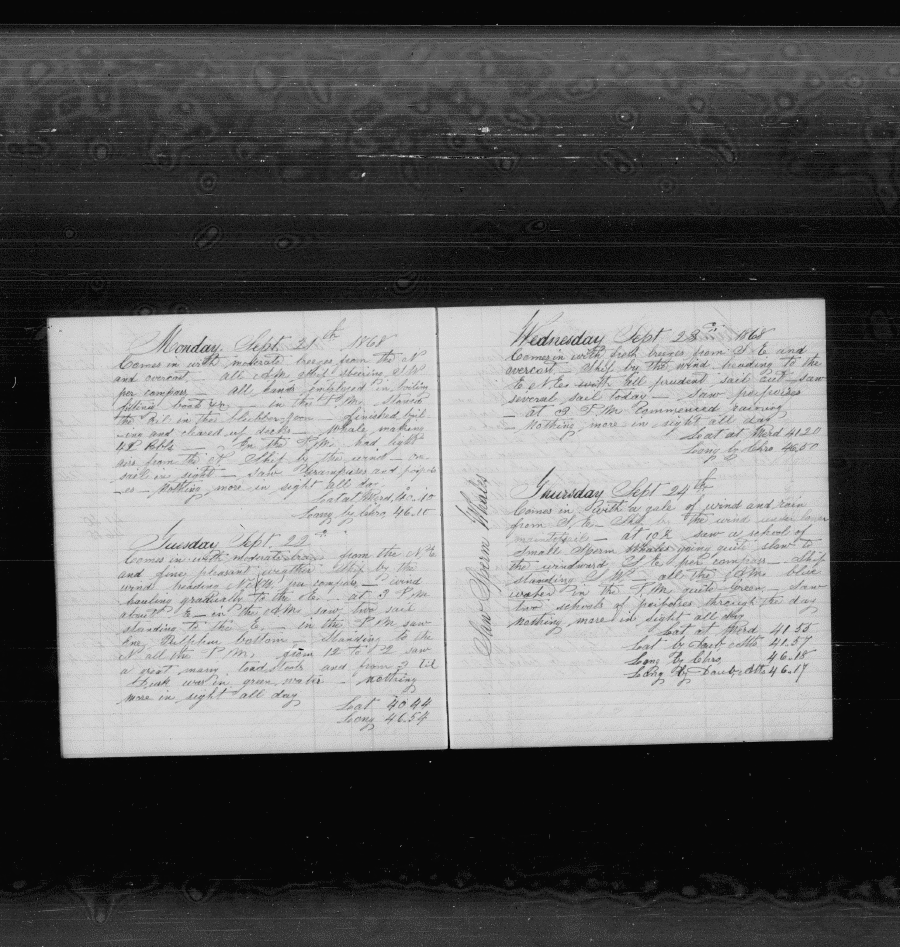 Monday Sept. 21th 1868
Comes in with moderate breezes from the N
and overcast — all A.M. ship steering S W
per compass — all hands employed in boiling
fitting boats &c — in the P.M.
the in the blubber room finished boil
-ing and cleared up decks — Whale making
42 Bbls — In the P.M. had light
airs from the N Ship by the wind — one
sail in sight — saw Grampuses and porpois
-es — Nothing more in sight all day
Lat at Merd 40.10
Long by Chro 46.10
Tuesday Sept 22d
Comes in with moderate breezes from the N E
and fine pleasant weather Ship by the
wind heading N N W per compass — wind
hauling gradually to the — at 3 P.M.
about E — in the A.M. saw two sail
standing to the E — in the P.M. saw
one Sulphur bottom — standing to the
N all the P.M. from 12 to 12 saw
a great many and from 3 til
Dusk was in green water — nothing
more in sight all day
Lat 40.44
Long 46.54
Wednesday Sept 23d 1868
Comes in with fresh breezes from S. E and
overcast — Ship by the wind heading to the
E N E with all prudent sail out — saw
several sail today — saw porpoises
— at 9 P.M. Commenced raining
— Nothing more in sight all day
Lat at Merd 41.20
Long by Chro 46.50
Saw Sperm Whales
Thursday Sept 24th
Comes in with a gale of wind and rain
from S. E — Ship by the wind under lower
maintopsail — at 10½ saw a school of
Small Sperm Whales going quite slow to
the windward S. E per compass — ship
standing S W — all the A.M. blue
water in the P.M. quite green — saw
two schools of porpoises through the day
nothing more in sight all day
Lat at Merd 41.55
Lat by Doub alts 41.57
Long by Chro 46.18
Long by Doub alts 46.17